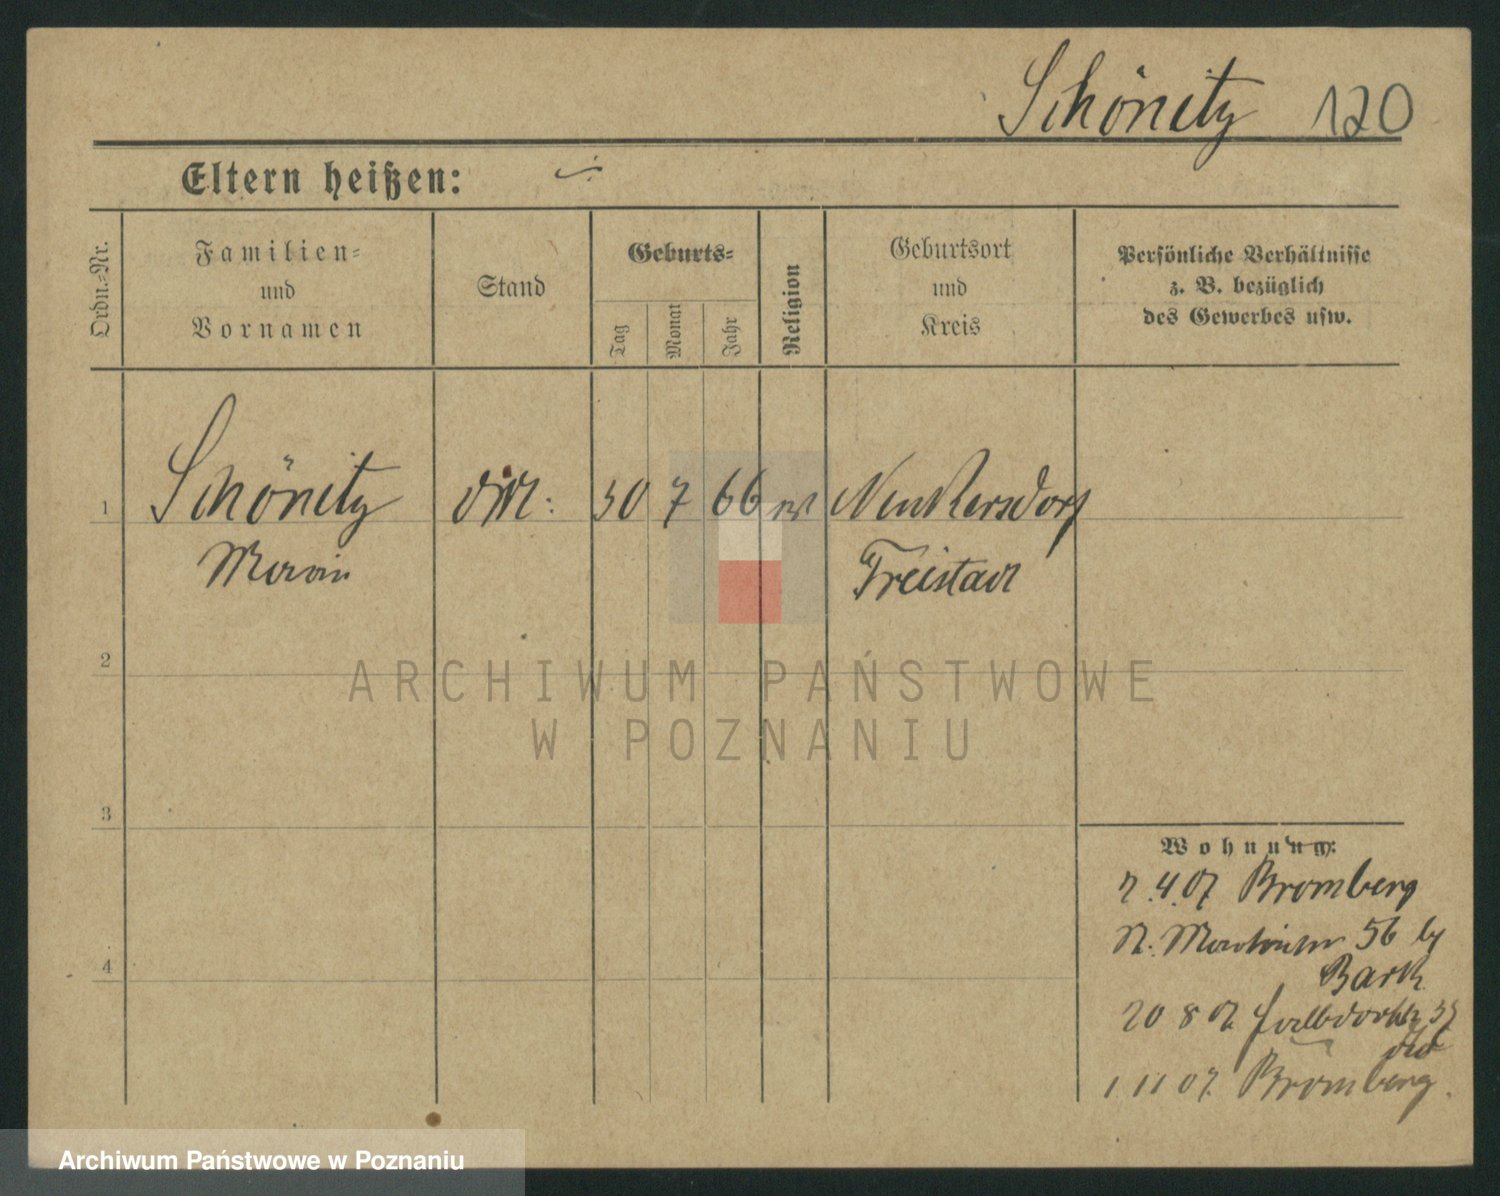 Schönitz 120
Eltern heißen: ./.
Ordn.-Nr.
Familien-
und
Vornamen
Stand
Geburts-
Tag
Monat
Jahr
Religion
Geburtsort
und
Kreis
Persönliche Verhältnisse
z. B. bezüglich
des Gewerbes usw.
1
Schönitz
30 7 66 ev
Neukersdorf
Freistadt
2
3
4
Wohnung:
2.4.07 Bromberg
56 by
Bark
20 8 07
1 11 07. Bromberg.
ARCHIWUM PAŃSTWOWE
W POZNANIU
Archiwum Państwowe w Poznaniu